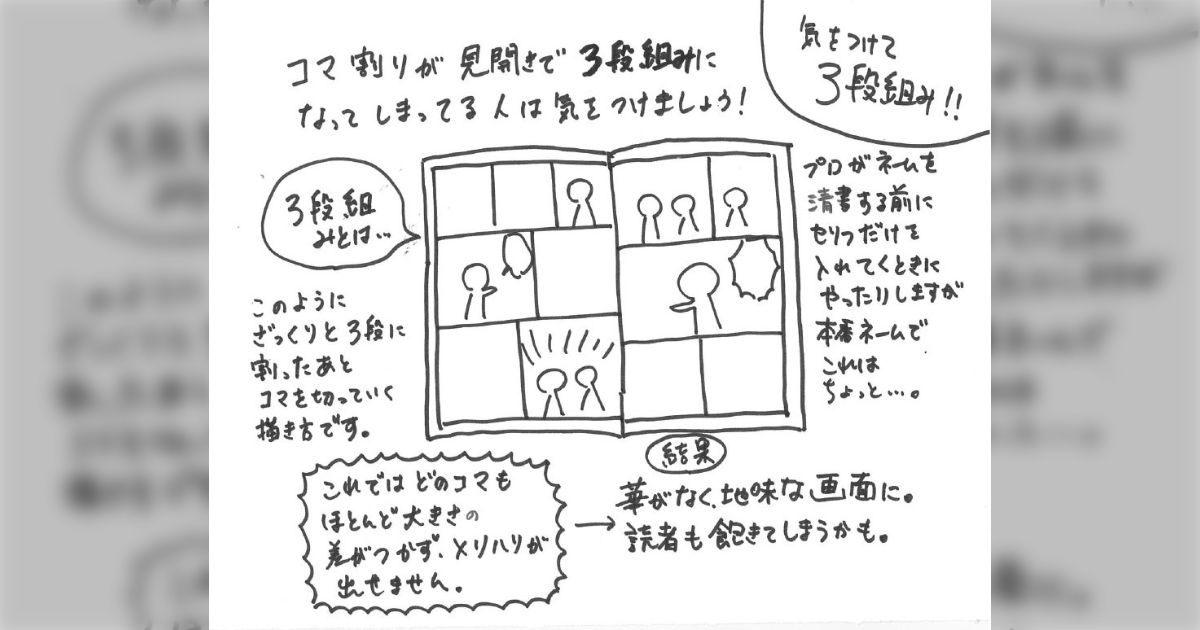 コマ割りが見開きで3段組みに
なってしまってる人は気をつけましょう!
気をつけて
3段組み!!
3段組
みとは…
このように
ざっくりと3段に
割ったあと
コマを切っていく
描き方です。
プロがネームを
清書する前に
もりつだけを
入れてくときに
やったりしますが
本番ネームで
これは
ちょっと…。
これではどのコマも
ほとんど大きさの
差がつかず、メリハリが
出せません。
→
結果
華がなく、地味な画面に。
読者も飽きてしまうかも。